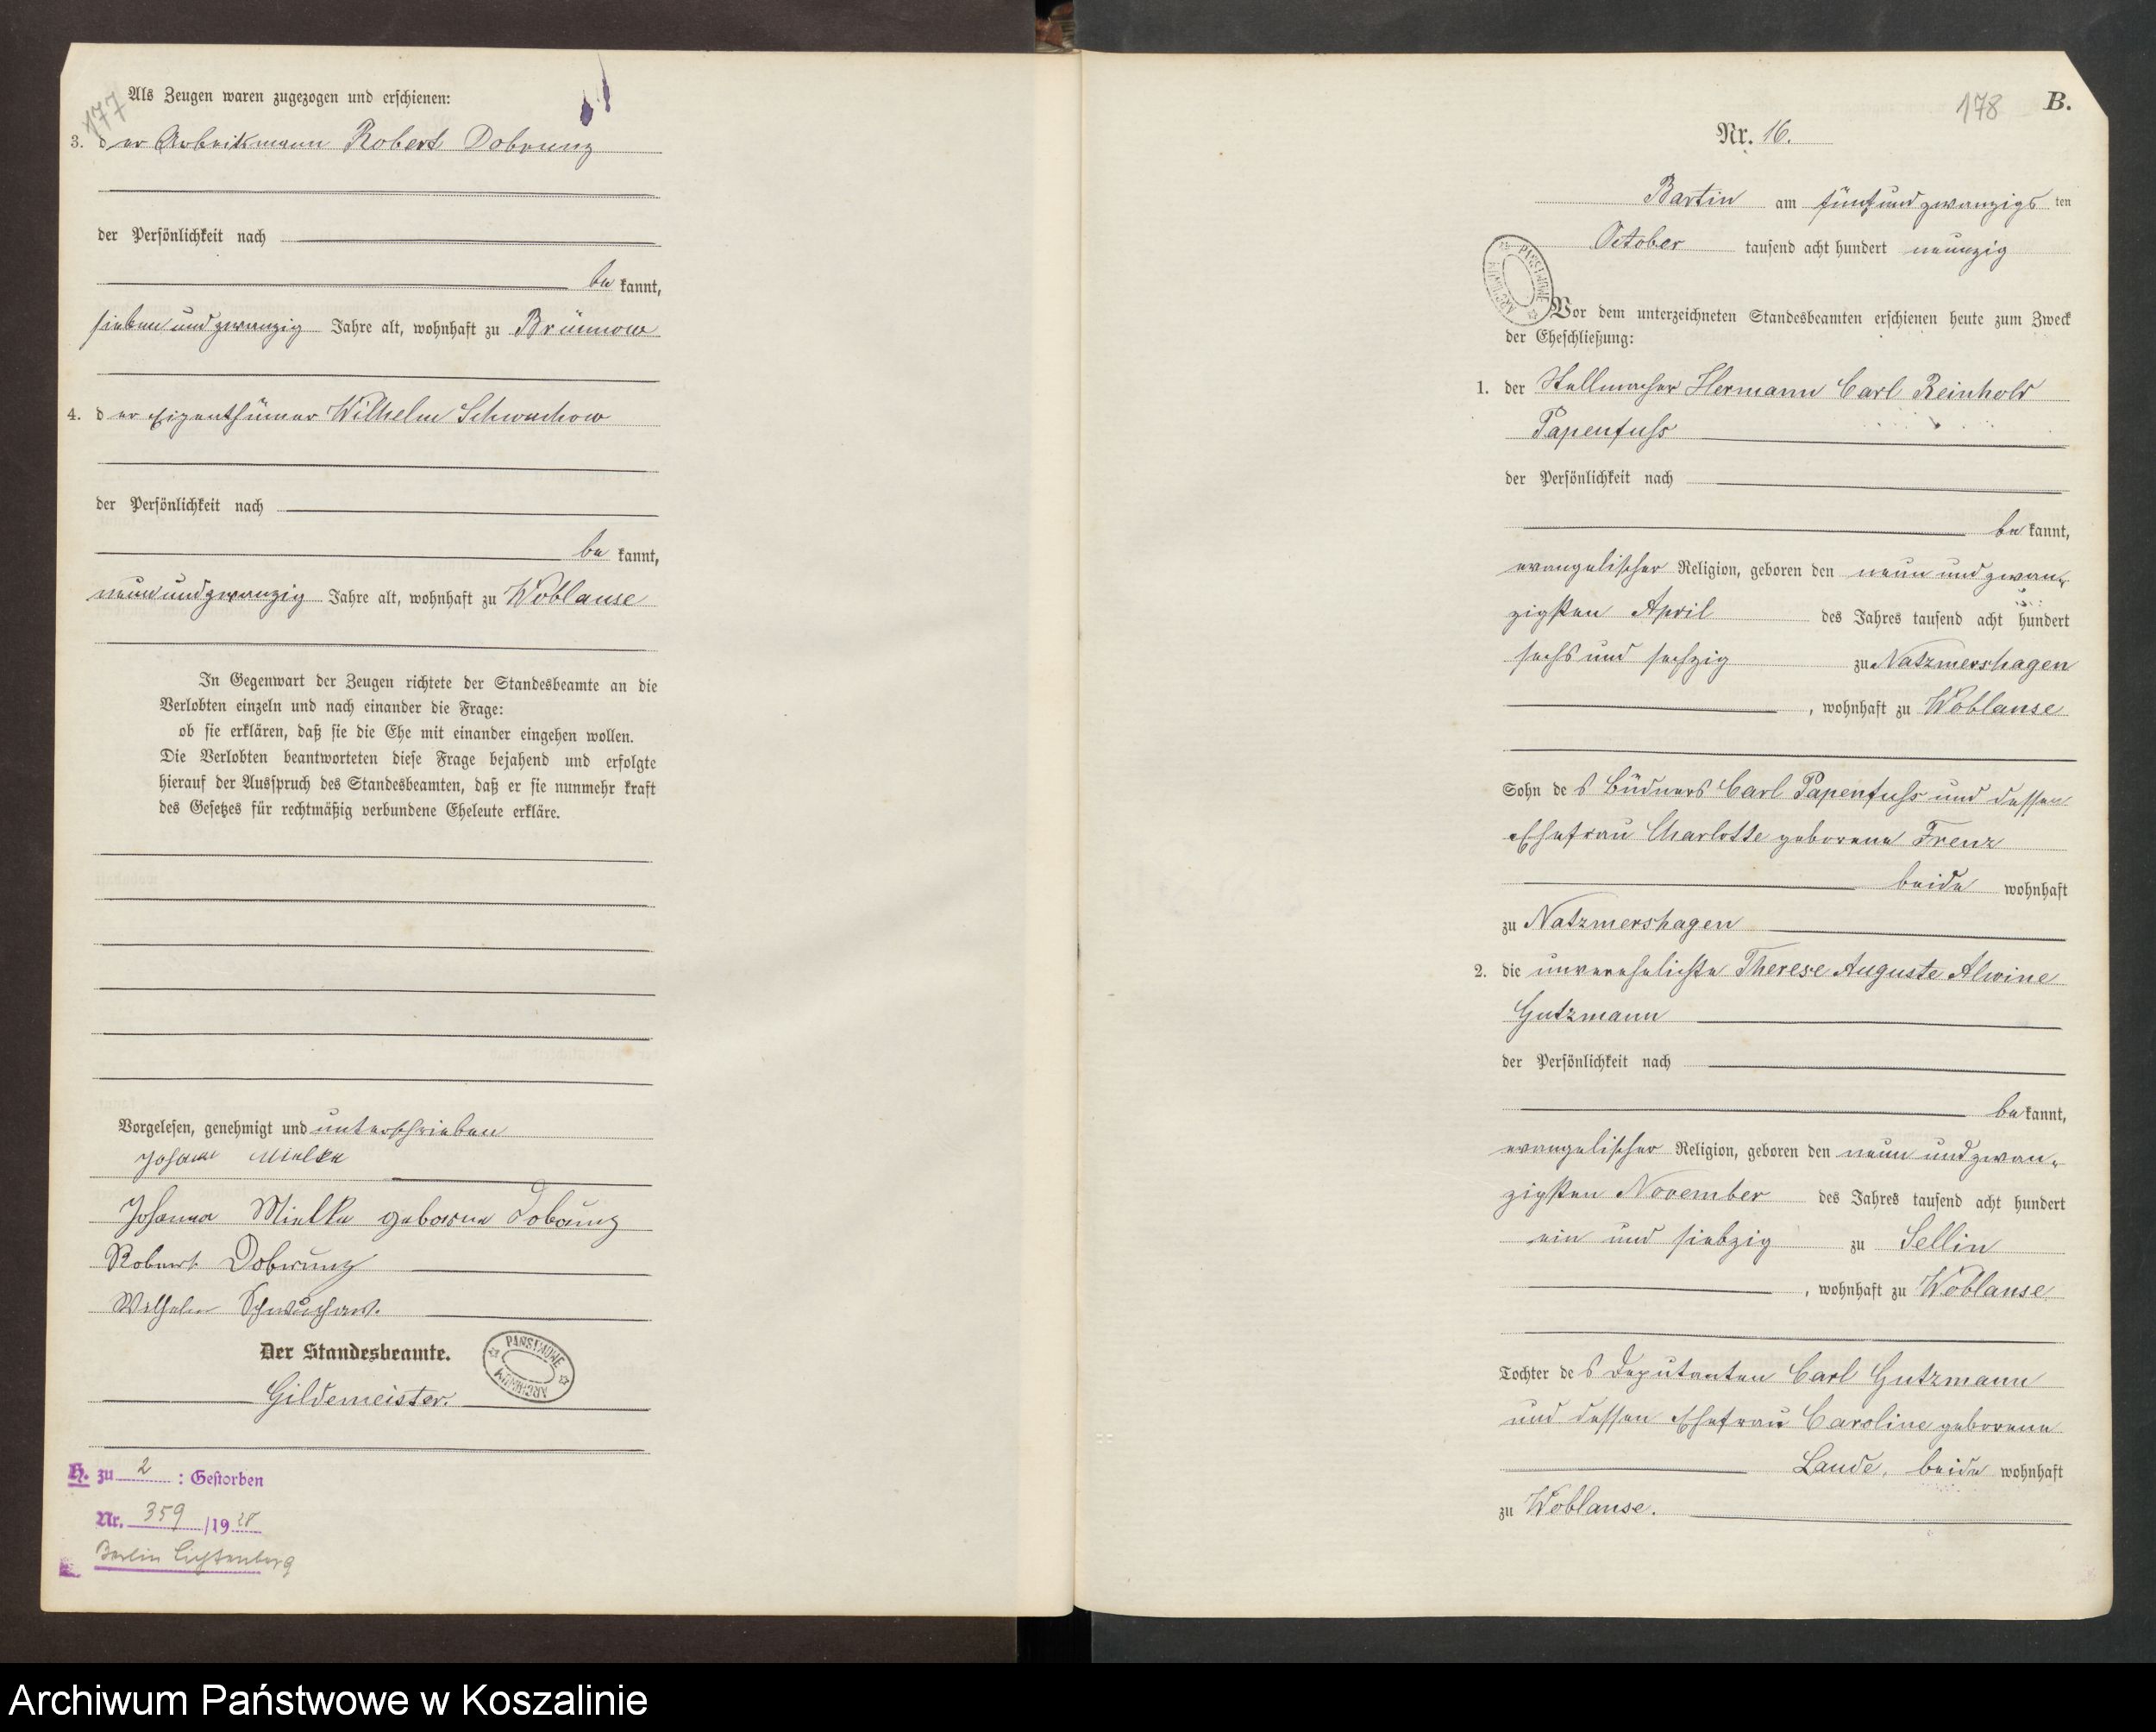 177
Als Zeugen waren zugezogen und erschienen:
3. der Arbeitsmann Robert Dobrunz
der Persönlichkeit nach
bekannt,
siebenundzwanzig Jahre alt, wohnhaft zu Brünnow
4. der Eigenthümer Wilhelm Schwuchow
der Persönlichkeit nach
bekannt,
neunundzwanzig Jahre alt, wohnhaft zu Woblanse
In Gegenwart der Zeugen richtete der Standesbeamte an die
Verlobten einzeln und nach einander die Frage:
ob sie erklären, daß sie die Ehe mit einander eingehen wollen.
Die Verlobten beantworteten diese Frage bejahend und erfolgte
hierauf der Ausspruch des Standesbeamten, daß er sie nunmehr kraft
des Gesetzes für rechtmäßig verbundene Eheleute erkläre.
Vorgelesen, genehmigt und unterschrieben
Johann Mielke
Johanna Mielke geborene Dobrunz
Robert Dobrunz
Wilhelm Schwuchow.
Der Standesbeamte.
PAŃSTWOWE ARCHIWUM
Gildemeister.
H. zu 2 : Gestorben
Nr. 359 /19 28
Berlin Lichtenberg
178 B.
Nr. 16.
Bartin am fünfundzwanzigsten
October tausend acht hundert neunzig
PAŃSTWOWE ARCHIWUM
Vor dem unterzeichneten Standesbeamten erschienen heute zum Zweck
der Eheschließung:
1. der Stellmacher Hermann Carl Reinhold
Papenfuss
der Persönlichkeit nach
bekannt,
evangelischer Religion, geboren den neun und zwan-
zigsten April des Jahres tausend acht hundert
sechs und sechzig zu Natzmershagen
, wohnhaft zu Woblanse
Sohn des Büdners Carl Papenfuss und dessen
Ehefrau Charlotte geborene Frenz
beide wohnhaft
zu Natzmershagen
2. die unverehelichte Therese Auguste Alwine
Gutzmann
der Persönlichkeit nach
bekannt,
evangelischer Religion, geboren den neun und zwan-
zigsten November des Jahres tausend acht hundert
ein und siebzig zu Sellin
, wohnhaft zu Woblanse
Tochter des Deputanten Carl Gutzmann
und dessen Ehefrau Caroline geborene
Laude, beide wohnhaft
zu Woblanse.
Archiwum Państwowe w Koszalinie